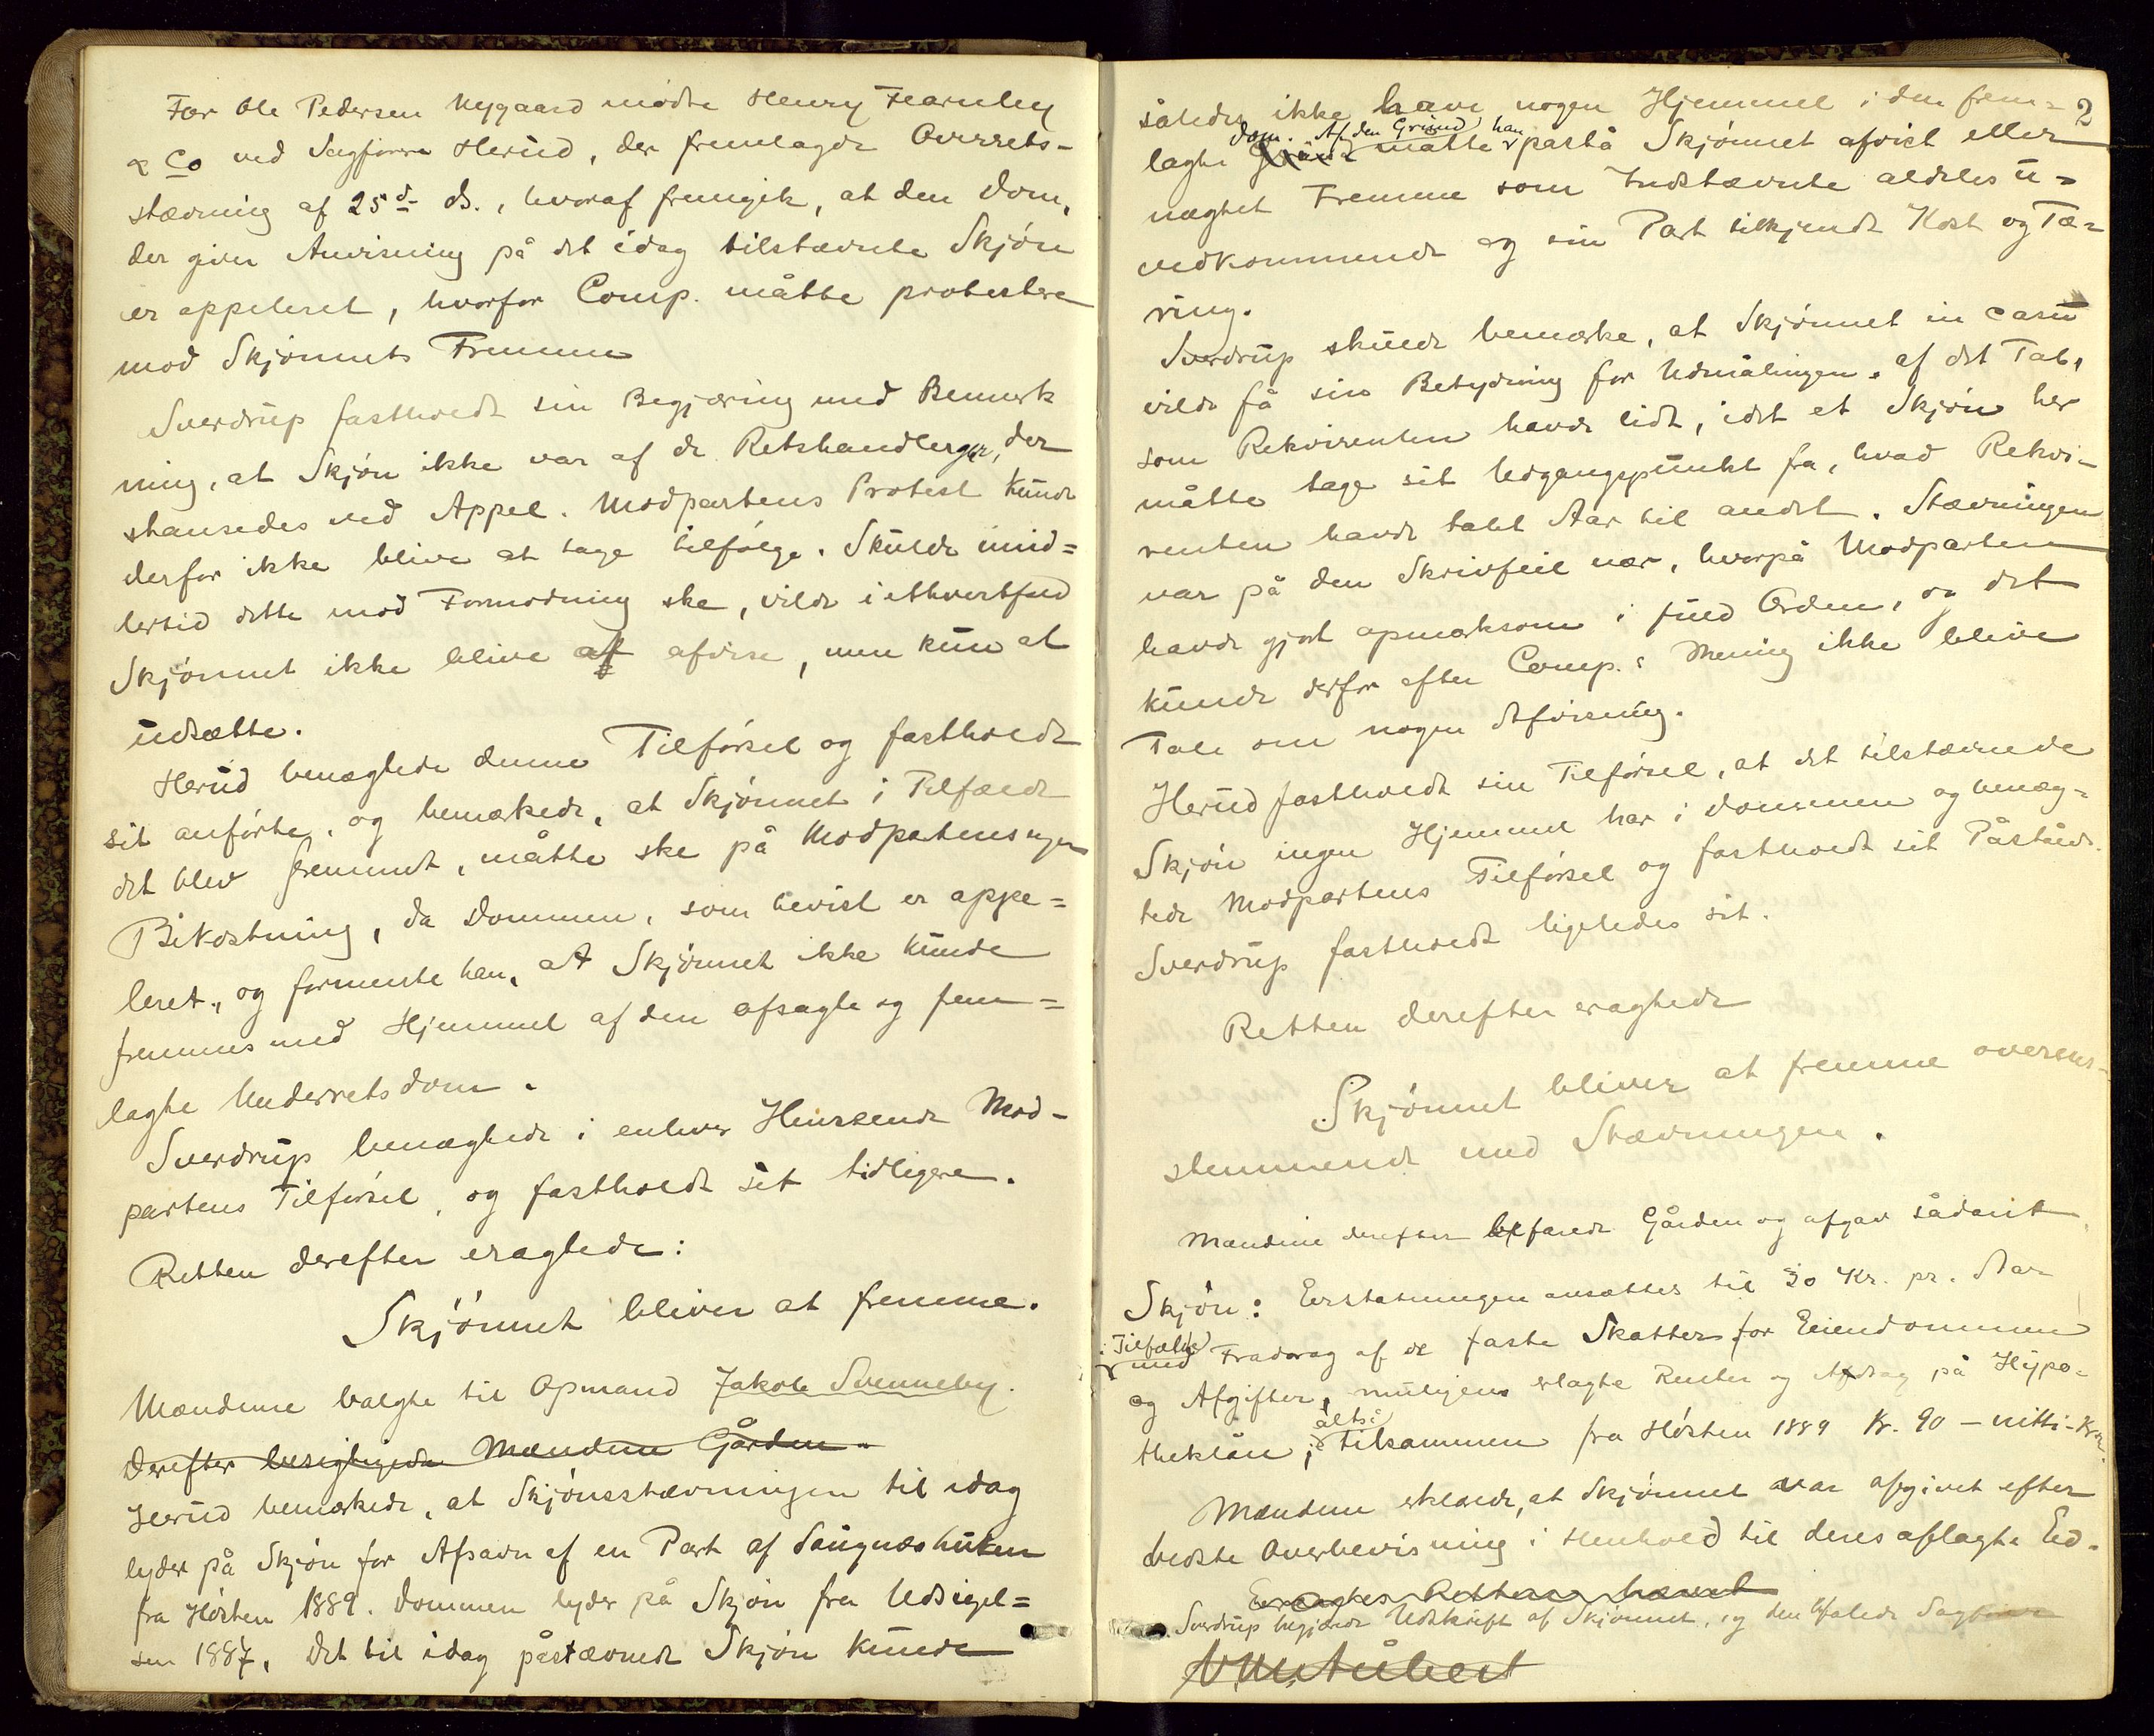 For Ole Pedersen Nygaard mødte Henry Fearnley
& Co ved Sagfører Herud, der fremlagde Overrets-
stævning af 25d ds., hvoraf fremgik, at den Dom,
der giver Anvisning på det idag tilstævnte Skjøn
er appeleret, hvorfor Comp. måtte protestere
mod Skjønnets Fremme
Sverdrup fastholdt sin Begjæring med Bemærk
ning, at Skjøn ikke var af de Retshandlerger, der
stansedes ved Appel. Modpartens Protest kunde
derfor ikke blive at tage tilfølge. Skulde imid=
lertid dette mod Formodning ske, vilde i ethvertfald
Skjønnet ikke blive at afvise, men kun at
udsætte.
Herud benægtede denne Tilførsel og fastholdt
sit anførte, og bemærkede, at Skjønnet i Tilfælde
det blev fremmet, måtte ske på Modpartens egen
Bekostning, da Dommen, som bevist er appe=
leret, og formente han, at Skjønnet ikke kunde
fremmes med Hjemmel af den afsagte og frem=
lagte Underretsdom.
Sverdrup benægtede i enhver Henseende Mod-
partens Tilførsel, og fastholdt sit tidligere.
Retten derefter eragtede:
Skjønnet bliver at fremme.
Mændene valgte til Opmand Jakob Svenneby.
Derefter besigtigede Mændene Gården.
Herud bemærkede, at Skjønsstævningen til idag
lyder på Skjøn for Afsavn af en Part af Saugnæshuken
fra Høsten 1889. Dommen lyder på Skjøn fra Udsigel=
sen 1887. Det til idag påstævnede Skjøn kunde
2
således ikke have nogen Hjemmel i den frem=
Dom. Af den Grund han
lagte måtte påstå Skjønnet afvist eller
nægtet Fremme som Indstævnte aldeles u=
vedkommende og sin Part tilkjendt Kost og Tæ=
ring.
Sverdrup skulde bemærke, at Skjønnet in casu
vilde få sin Betydning for Udmålingen af det Tab,
som Rekvirenten havde lidt, idet et Skjøn her
måtte tage sit Udgangspunkt fra, hvad Rekvi-
renten havde tabt Aar til andet. Stævningen
var på den Skrivfeil nær, hvorpå Modparten
havde gjort opmærksom i fuld Orden, og det
kunde derfor efter Comp.s Mening ikke blive
Tale om nogen Afvisning.
Herud fastholdt sin Tilførsel, at det tilstævnede
Skjøn ingen Hjemmel har i Dommen og benæg=
tede Modpartens Tilførsel og fastholdt sit Påstånd.
Sverdrup fastholdt ligeledes sit.
Retten derefter eragtede
Skjønnet bliver at fremme overens-
stemmende med Stævningen.
Mændene derefter befarede Gården og afgav sådant
Skjøn: Erstatningen ansættes til 30 Kr. pr. Aar
i Tilfælde
med Fradrag af de faste Skatter for Eiendommen
og Afgifter, muligens erlagte Renter og Afdrag på Hypo=
altså
theklån; tilsammen fra Høsten 1889 Kr. 90 – nitti – Kr.
Mændene erklærede, at Skjønnet var afgivet efter
bedste Overbevisning i Henhold til deres aflagte Ed.
Retten hævet
Sverdrup begjærede Udskrift af Skjønnet, og den befalede